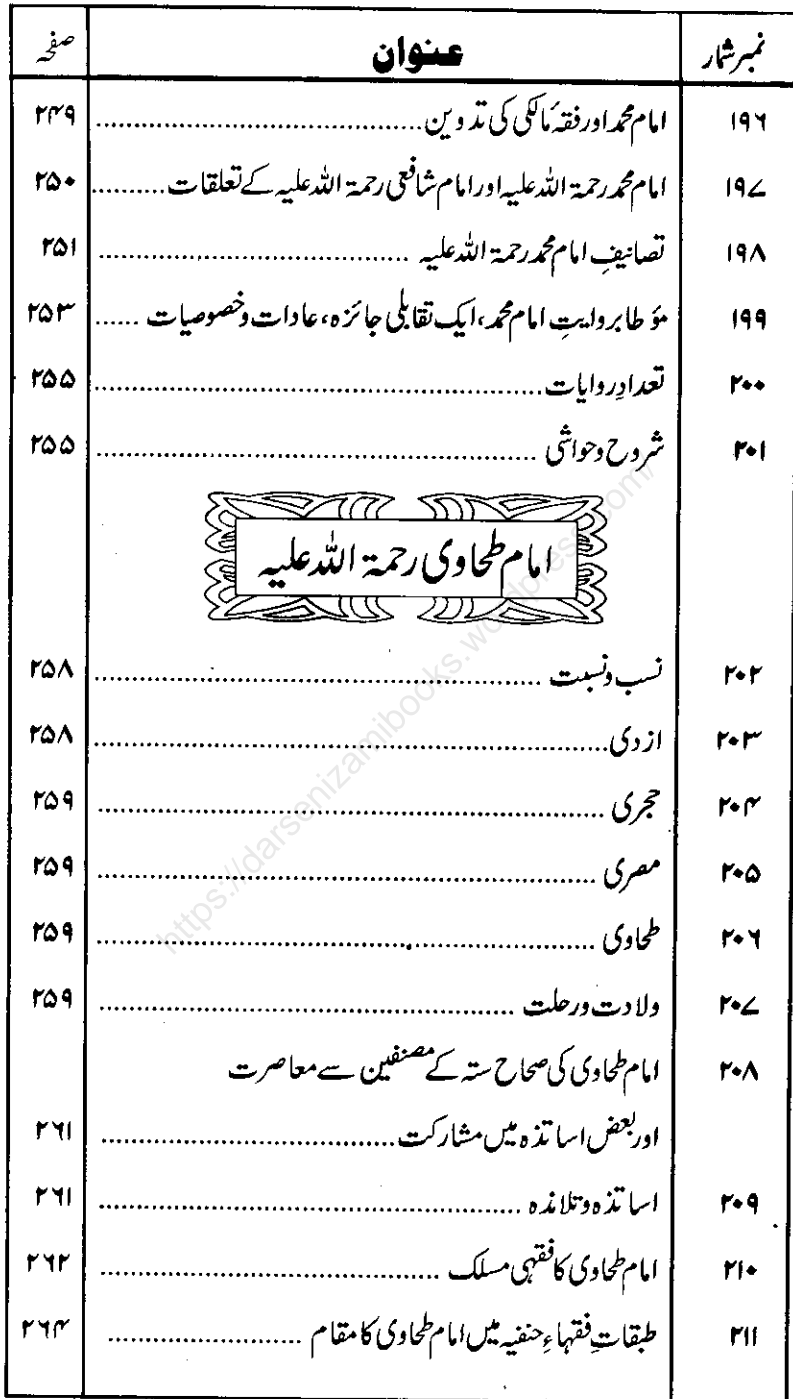 نمبر شمار عنوان صفحہ
۱۹۶ امام محمد اور فقہ مالکی کی تدوین ........ ۲۴۹
۱۹۷ امام محمد رحمۃ اللہ علیہ اور امام شافعی رحمۃ اللہ علیہ کے تعلقات ........ ۲۵۰
۱۹۸ تصانیفِ امام محمد رحمۃ اللہ علیہ ........ ۲۵۱
۱۹۹ مؤطا بروایتِ امام محمد، ایک تقابلی جائزہ، عادات وخصوصیات ...... ۲۵۳
۲۰۰ تعدادِ روایات ........ ۲۵۵
۲۰۱ شروح وحواشی ........ ۲۵۵
امام طحاوی رحمۃ اللہ علیہ
۲۰۲ نسب ونسبت ........ ۲۵۸
۲۰۳ ازدی ........ ۲۵۸
۲۰۴ حجری ........ ۲۵۹
۲۰۵ مصری ........ ۲۵۹
۲۰۶ طحاوی ........ ۲۵۹
۲۰۷ ولادت ورحلت ........ ۲۵۹
۲۰۸ امام طحاوی کی صحاح ستہ کے مصنفین سے معاصرت
اور بعض اساتذہ میں مشارکت ........ ۲۶۱
۲۰۹ اساتذہ وتلامذہ ........ ۲۶۱
۲۱۰ امام طحاوی کا فقہی مسلک ........ ۲۶۲
۲۱۱ طبقاتِ فقہاءِ حنفیہ میں امام طحاوی کا مقام ........ ۲۶۴
https://darsenizamibooks.wordpress.com/